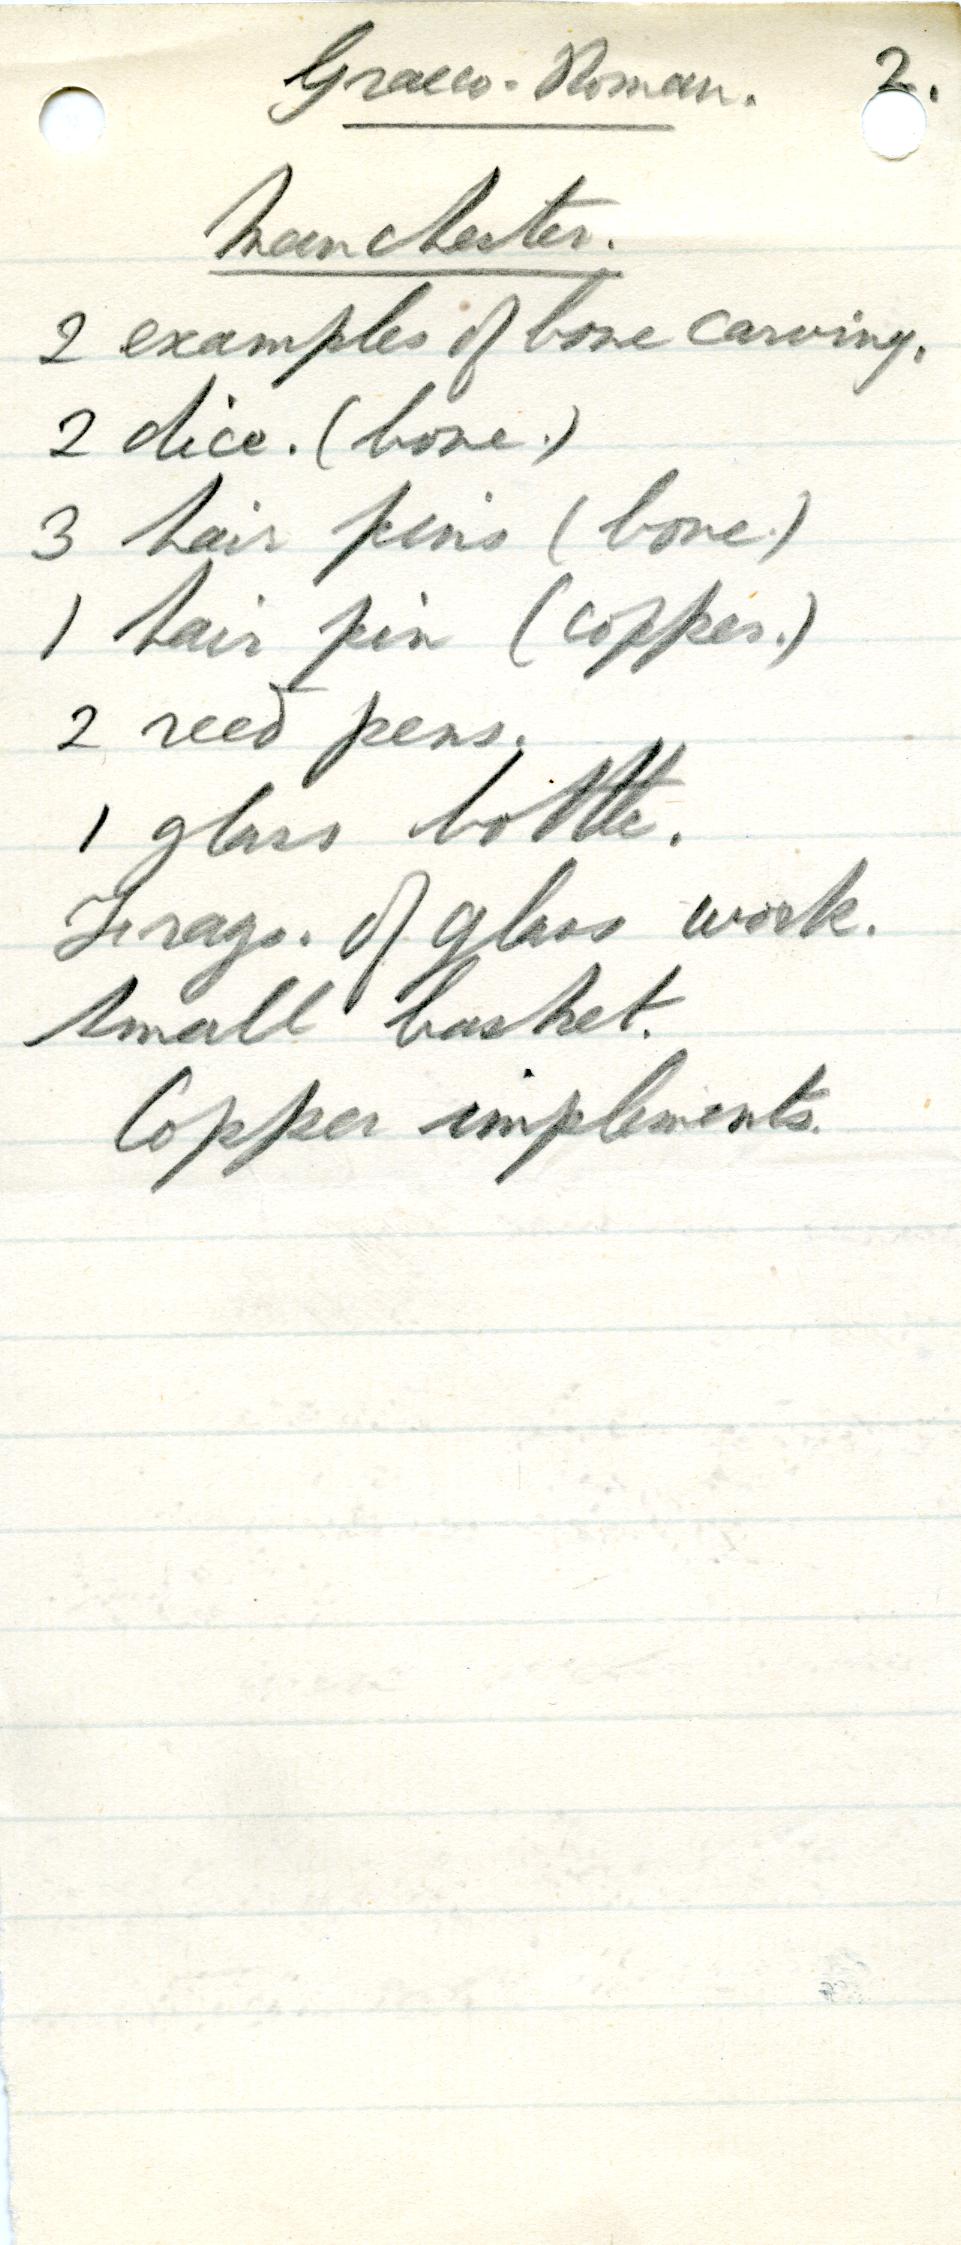 Graeco-Roman. 2.
Manchester.
2 examples of bone carving.
2 dice. (bone.)
3 hair pins (bone.)
1 hair pin (copper.)
2 reed pens.
1 glass bottle.
Frags. of glass work.
Small basket.
Copper implements.